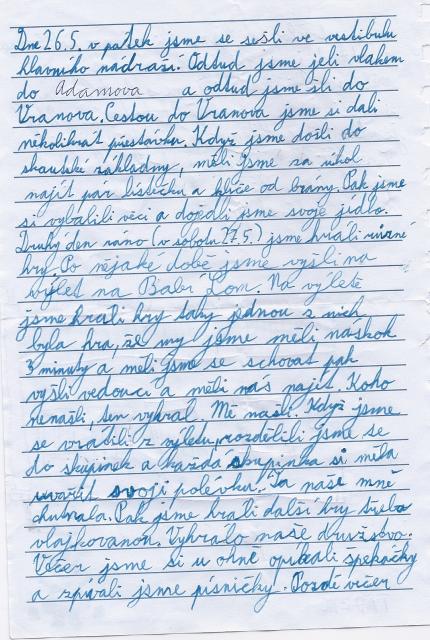 Dne 26.5. v pátek jsme se sešli ve vestibulu
hlavního nádraží. Odtud jsme jeli vlakem
do Adamova a odtud jsme šli do
Vranova. Cestou do Vranova jsme si dali
několikrát přestávku. Když jsme došli do
skautské základny, měli jsme za úkol
najít pár lístečku a klíče od brány. Pak jsme
si vybalili věci a dojedli jsme svoje jídlo.
Druhý den ráno (v sobotu 27.5.) jsme hráli různé
hry. Po nějaké době jsme vyšli na
výlet na Babí Lom. Na výletě
jsme hráli hry taky jednou z nich
byla hra, že my jsme měli náskok
3 minuty a měli jsme se schovat pak
vyšli vedoucí a měli nás najít. Koho
nenašli, ten vyhrál. Mě našli. Když jsme
se vrátili z výletu, rozdělili jsme se
do skupinek a každá skupinka si měla
uvařit svoji polévku. Ta naše mně
chutnala. Pak jsme hráli další hry třeba
vlajkovanou. Vyhrálo naše družstvo.
Večer jsme si u ohně opékali špekáčky
a zpívali jsme písničky. Pozdě večer